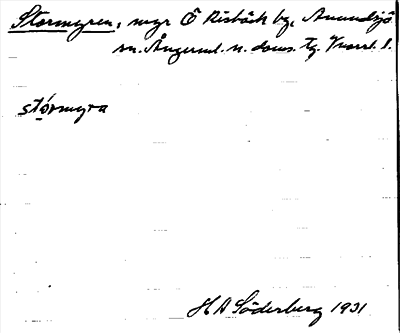 Stormyren, myr Ö Risbäck by, Anundsjö
sn. Ångerml. n. doms. Tg. 
stórmyra
H A Söderberg 1931